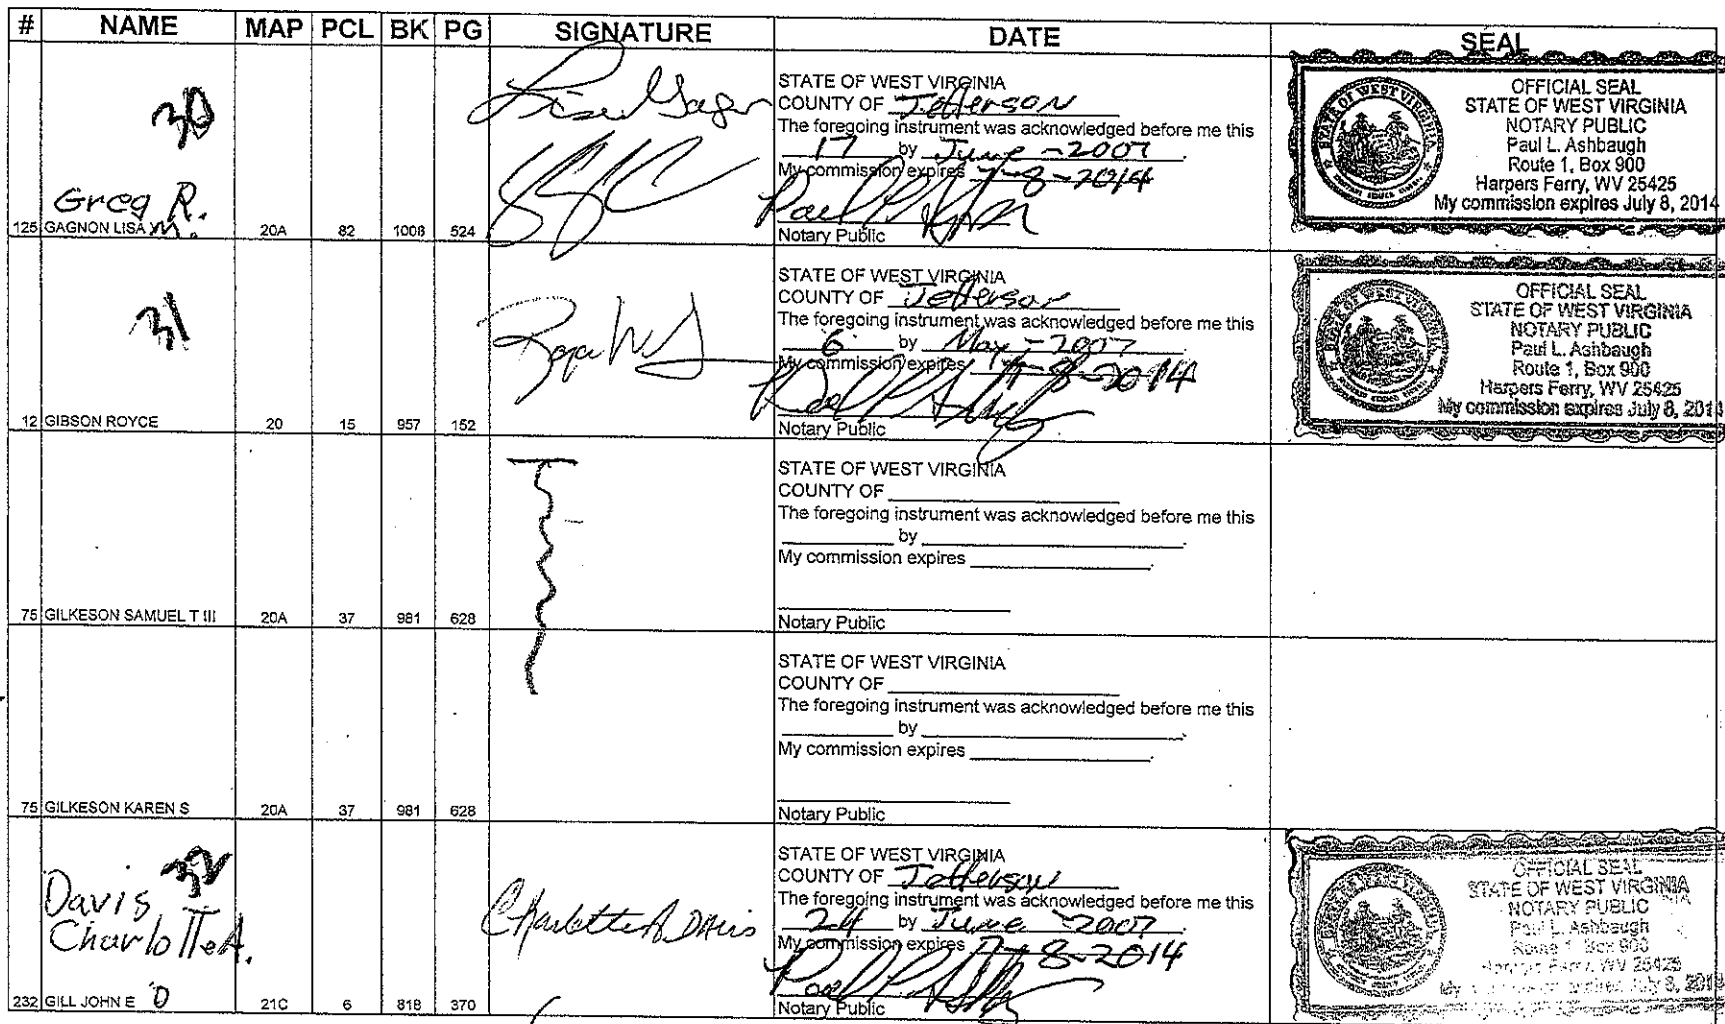 # NAME MAP PCL BK PG SIGNATURE DATE SEAL
30
Greg R.
125 GAGNON LISA M. 20A 82 1008 524
STATE OF WEST VIRGINIA
COUNTY OF Jefferson
The foregoing instrument was acknowledged before me this
17 by June - 2007.
My commission expires 7-8-2014
Notary Public
OFFICIAL SEAL
STATE OF WEST VIRGINIA
NOTARY PUBLIC
Paul L. Ashbaugh
Route 1, Box 900
Harpers Ferry, WV 25425
My commission expires July 8, 2014
31
12 GIBSON ROYCE 20 15 957 152
STATE OF WEST VIRGINIA
COUNTY OF Jefferson
The foregoing instrument was acknowledged before me this
6 by May - 2007.
My commission expires 7-8-2014
Notary Public
OFFICIAL SEAL
STATE OF WEST VIRGINIA
NOTARY PUBLIC
Paul L. Ashbaugh
Route 1, Box 900
Harpers Ferry, WV 25425
My commission expires July 8, 2014
75 GILKESON SAMUEL T III 20A 37 981 628
STATE OF WEST VIRGINIA
COUNTY OF
The foregoing instrument was acknowledged before me this
by
My commission expires
Notary Public
75 GILKESON KAREN S 20A 37 981 628
STATE OF WEST VIRGINIA
COUNTY OF
The foregoing instrument was acknowledged before me this
by
My commission expires
Notary Public
32
Davis
Charlotte A.
232 GILL JOHN E 0 21C 6 818 370
Charlotte A Davis
STATE OF WEST VIRGINIA
COUNTY OF Jefferson
The foregoing instrument was acknowledged before me this
24 by June - 2007.
My commission expires 7-8-2014
Notary Public
OFFICIAL SEAL
STATE OF WEST VIRGINIA
NOTARY PUBLIC
Paul L. Ashbaugh
Route 1, Box 900
Harpers Ferry, WV 25425
My commission expires July 8, 2014